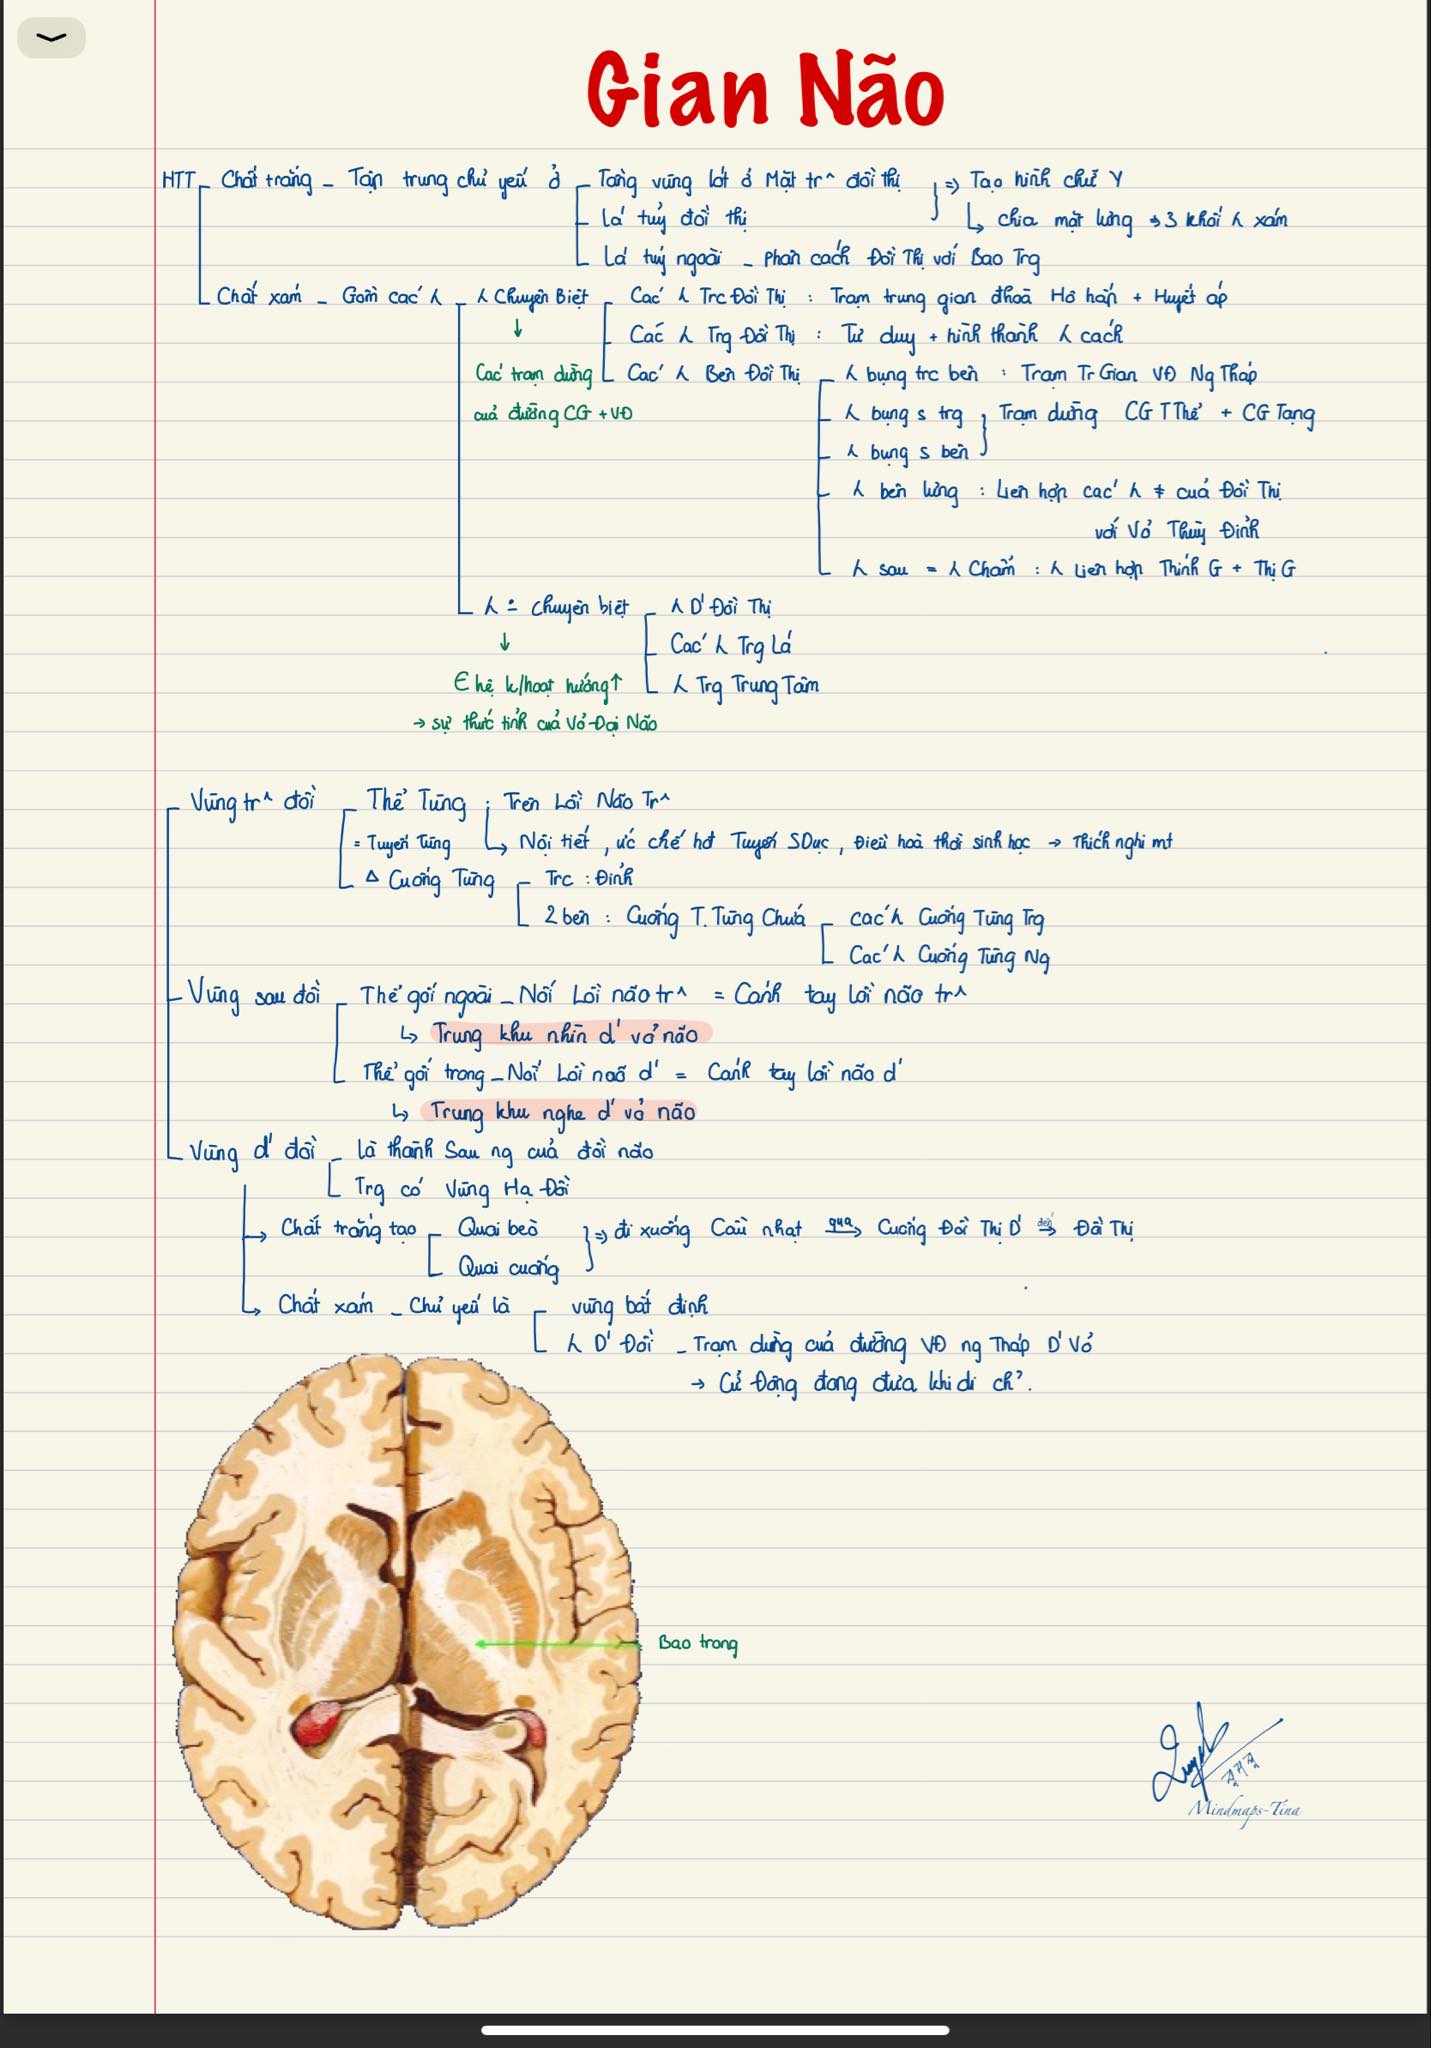 Gian Não
HTT Chất trắng - Tập trung chủ yếu ở Tầng vùng lót ở Mặt tr^ đồi thị => Tạo hình chữ Y
Lá tuỷ đồi thị ↳ chia mặt lưng → 3 khối λ xám
Lá tuỷ ngoài - phân cách Đồi Thị với Bao Trg
Chất xám - Gồm các λ λ Chuyên Biệt Các λ Trc Đồi Thị : Trạm trung gian đhoà Hô hấp + Huyết áp
↓ Các λ Trg Đồi Thị : Tư duy + hình thành λ cách
Các trạm dừng Các λ Bên Đồi Thị λ bụng trc bên : Trạm Tr Gian VĐ Ng Tháp
của đường CG + VĐ λ bụng s trg } Trạm dừng CG T Thể + CG Tạng
λ bụng s bên
λ bên lưng : Liên hợp các λ ≠ của Đồi Thị
với Vỏ Thuỳ Đỉnh
λ sau = λ Chẩm : λ Liên hợp Thính G + Thị G
λ chuyên biệt λ D' Đồi Thị
↓ Các λ Trg Lá
∈ hệ k/hoạt hướng↑ λ Trg Trung Tâm
→ sự thức tỉnh của Vỏ Đại Não
Vùng tr^ đồi Thể Tùng : Trên Lồi Não Tr^
= Tuyến Tùng ↳ Nội tiết, ức chế hđ Tuyến SDục, Điều hoà thời sinh học → Thích nghi mt
Δ Cuống Tùng Trc : Đỉnh
2 bên : Cuống T. Tùng Chứa các λ Cuống Tùng Trg
Các λ Cuống Tùng Ng
Vùng sau đồi Thể gối ngoài - Nối Lồi não tr^ = Cánh tay lồi não tr^
↳ Trung khu nhìn d' vỏ não
Thể gối trong - Nối Lồi não d' = Cánh tay lồi não d'
↳ Trung khu nghe d' vỏ não
Vùng d' đồi - Là thành Sau ng của đồi não
Trg có Vùng Hạ Đồi
→ Chất trắng tạo Quai bèo } => đi xuống Cầu nhạt qua → Cuống Đồi Thị D' đến → Đồi Thị
Quai cuống
↳ Chất xám - Chủ yếu là vùng bất định
λ D' Đồi - Trạm dừng của đường VĐ ng Tháp D' Vỏ
→ Cử Động đong đưa khi di ch?.
Bao trong
Mindmaps-Tina